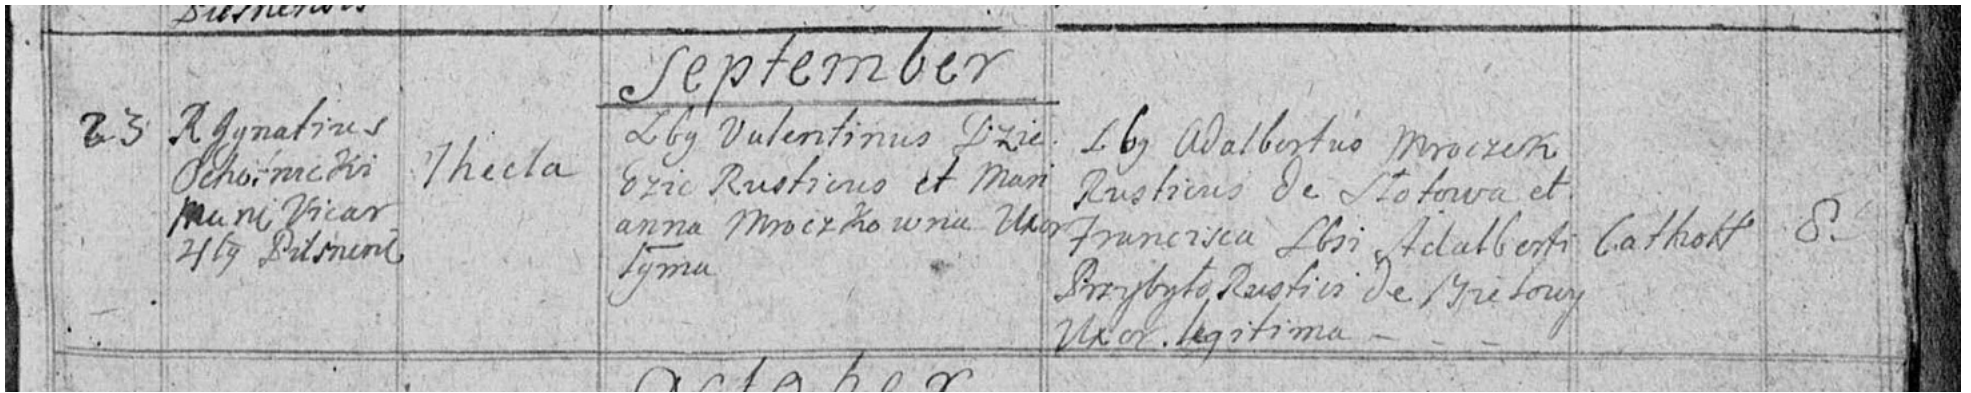 Pilsnensis
September
23
R Ignatius
Ochotnicki
Mani Vicar
Pilsnens
Thecla
Lbg Valentinus Dzie
dzic Rusticus et Mari
anna Mroczkowna Uxor
tyma
Lbg Adalbertus Mroczek
Rusticus de Slotowa et
Francisca Lbsi Adalberti
Przybyło Rustici de
Uxor legitima - - -
Cathol
8.
October